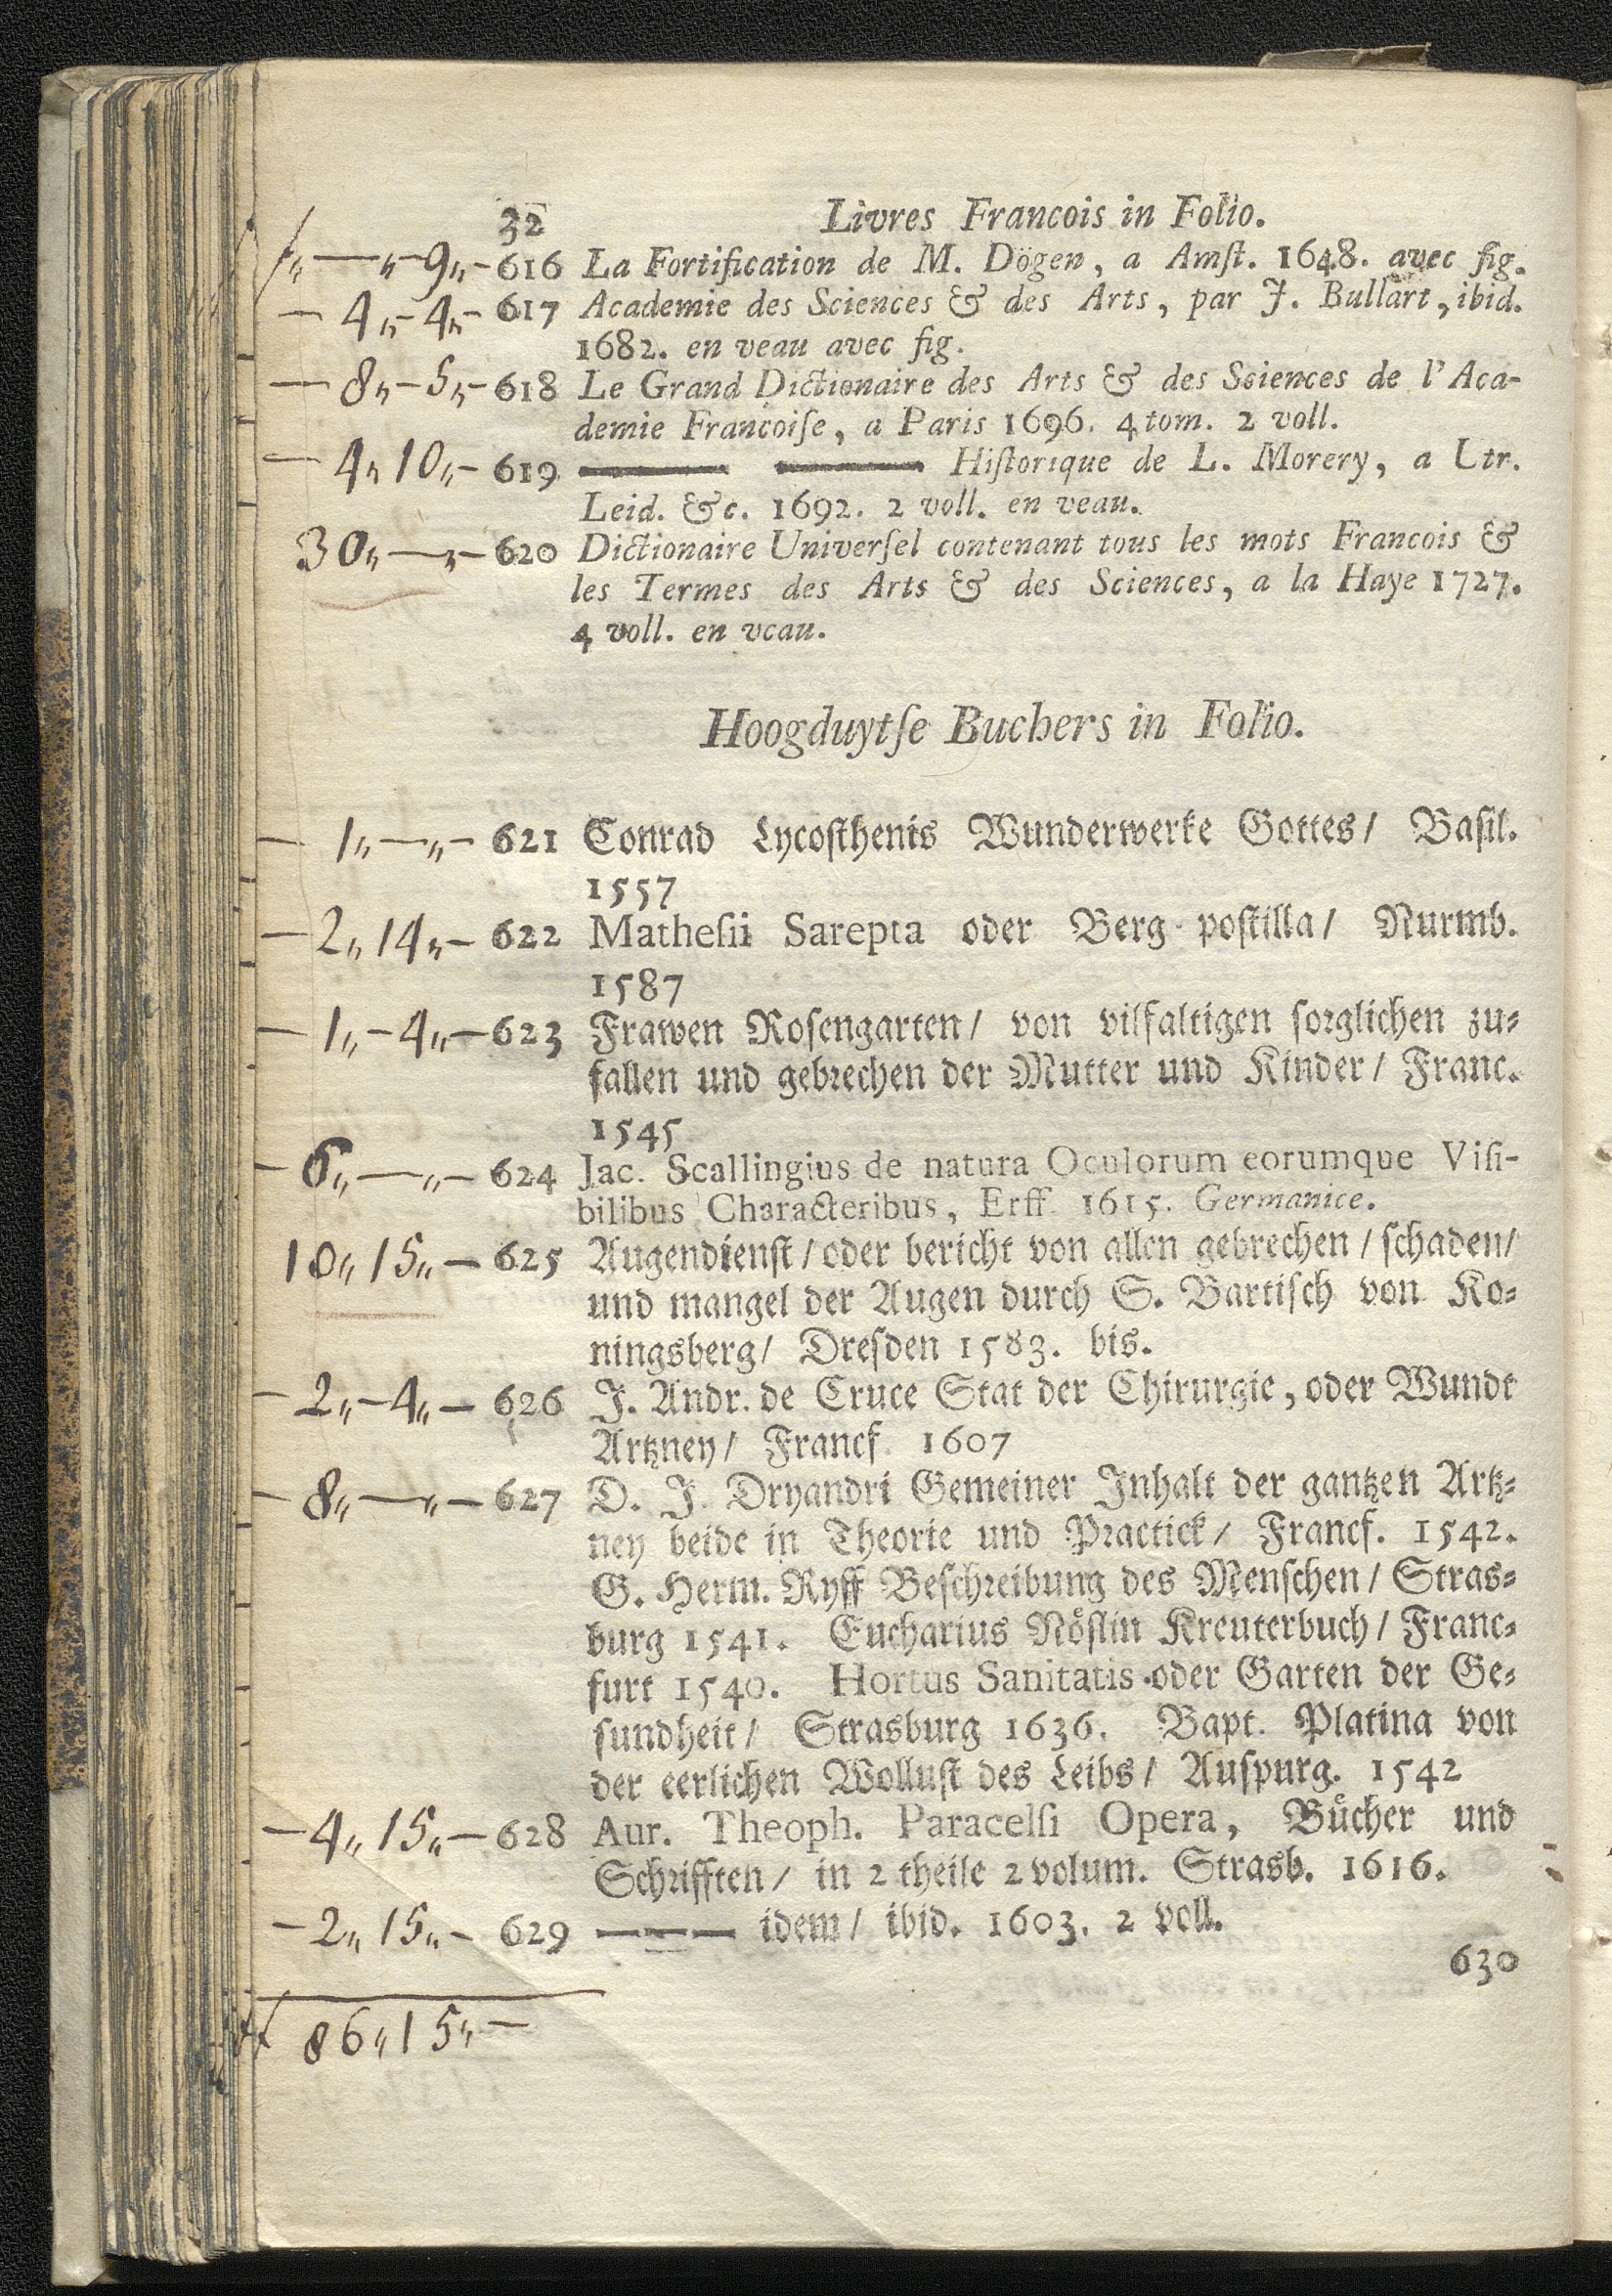 32 Livres Francois in Folio.
ƒ„—„-9„- 616 La Fortification de M. Dögen, a Amſt. 1648. avec fig.
— 4„-4„- 617 Academie des Sciences & des Arts, par J. Bullart, ibid.
1682. en veau avec fig.
— 8„-5„- 618 Le Grand Dictionaire des Arts & des Sciences de l'Aca-
demie Francoiſe, a Paris 1696. 4 tom. 2 voll.
— 4„10„- 619 —— —— Hiſtorique de L. Morery, a Utr.
Leid. &c. 1692. 2 voll. en veau.
30„—„- 620 Dictionaire Univerſel contenant tous les mots Francois &
les Termes des Arts & des Sciences, a la Haye 1727.
4 voll. en veau.
Hoogduytſe Buchers in Folio.
— 1„—„- 621 Conrad Lycoſthenis Wunderwerke Gottes/ Baſil.
1557
— 2„14„- 622 Matheſii Sarepta oder Berg-poſtilla/ Nurmb.
1587
— 1„-4„- 623 Frawen Roſengarten/ von vilfaltigen ſorglichen zu-
fallen und gebrechen der Mutter und Kinder/ Franc.
1545
- 6„—„- 624 Jac. Scallingius de natura Oculorum eorumque Viſi-
bilibus Characteribus, Erff. 1615. Germanice.
10„15„- 625 Augendienſt/ oder bericht von allen gebrechen/ ſchaden/
und mangel der Augen durch S. Bartiſch von Ko-
ningsberg/ Dreſden 1583. bis.
- 2„-4„- 626 J. Andr. de Cruce Stat der Chirurgie, oder Wundt
Artzney/ Francf. 1607
- 8„—„- 627 D. J. Dryandri Gemeiner Inhalt der gantzen Artz-
ney beide in Theorie und Practick/ Francf. 1542.
G. Herm. Ryff Beſchreibung des Menſchen/ Stras-
burg 1541. Eucharius Röſlin Kreuterbuch/ Franc-
furt 1540. Hortus Sanitatis oder Garten der Ge-
ſundheit/ Strasburg 1636. Bapt. Platina von
der eerlichen Wolluſt des Leibs/ Auſpurg. 1542
- 4„15„- 628 Aur. Theoph. Paracelſi Opera, Bücher und
Schrifften/ in 2 theile 2 volum. Strasb. 1616.
- 2„15„- 629 ——— idem/ ibid. 1603. 2 voll.
630
ƒ 86„15„-